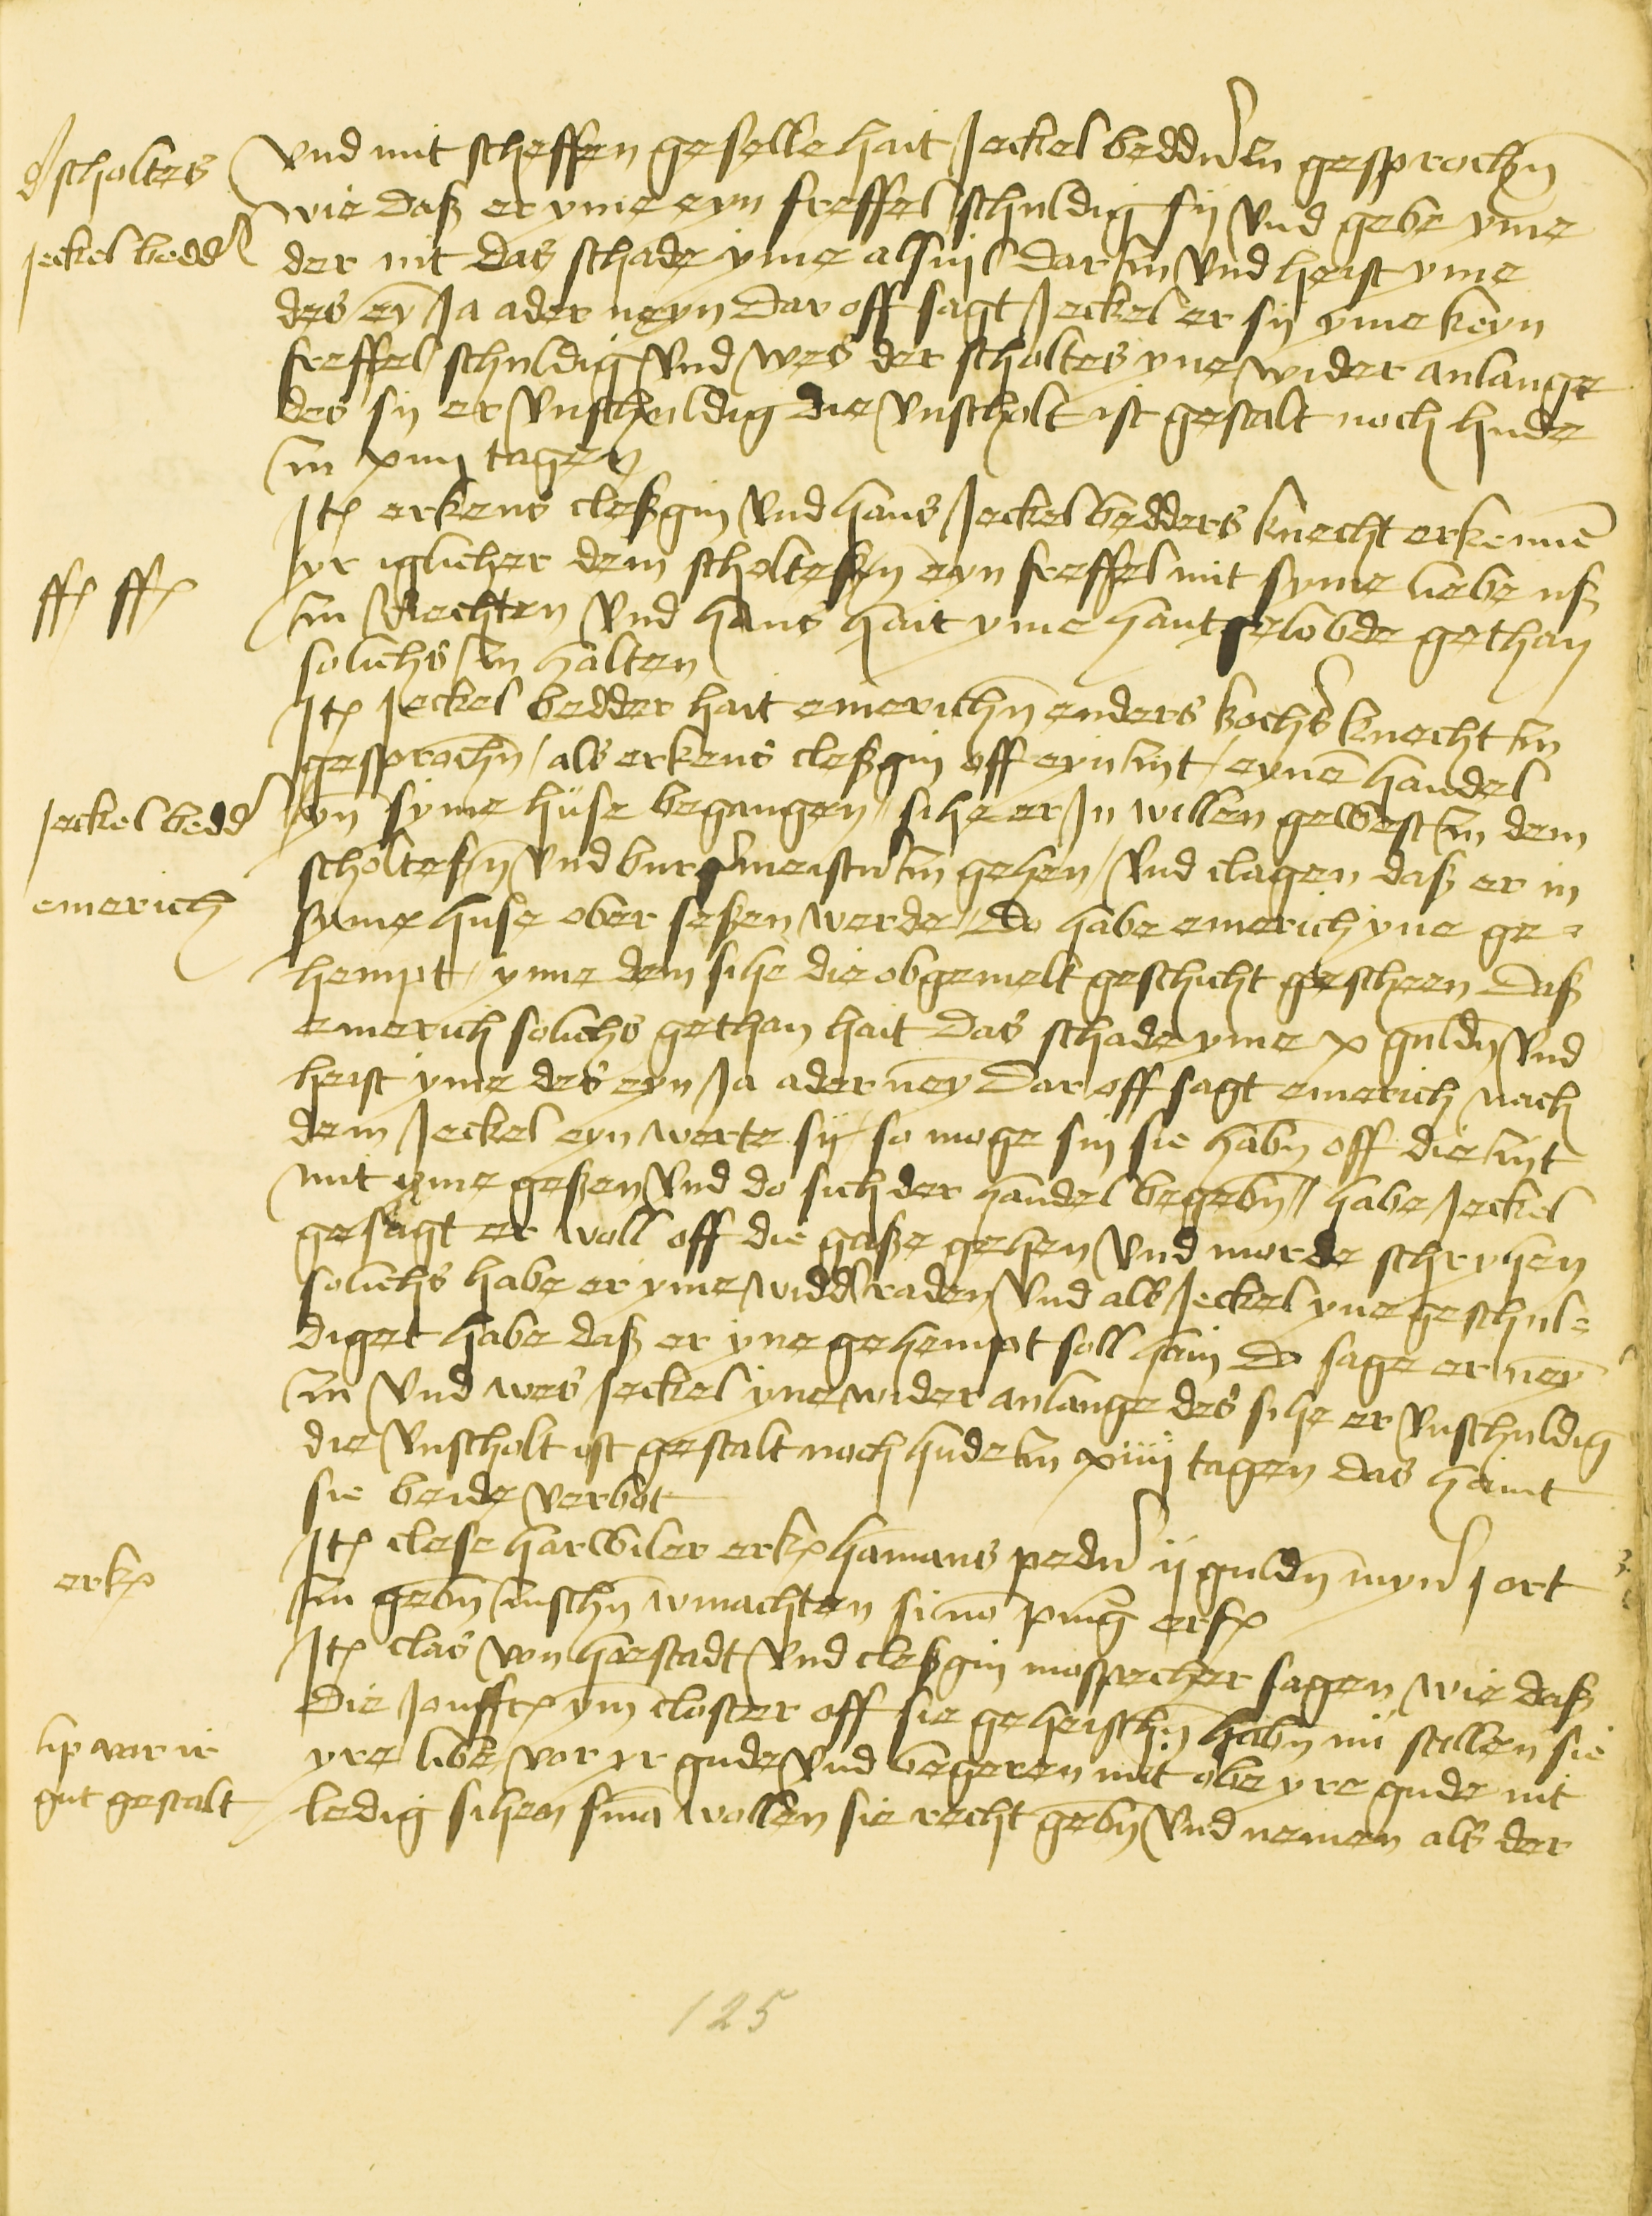 d scholtes
Jeckel bedd
Vnd mit scheffen geselle hait Jeckel bedder zu gesprochn
wie daß er yme eyn freffel schuldig sij Vnd gebe yme
der nit das schade yme alsuil dar zu Vnd heist yme
des ey Ja ader neyn Dar off sagt Jeckel er sij yme keyn
freffel schuldig Vnd wes der scholtes yne wider anlange
des sij er Vnschuldig die Vnscholt ist gestalt noch hude
zu xiiij tagen
ff ff
Jt erkens cleßgin Vnd hans Jeckel bedders knecht erkenne
yr iglicher dem scholteßn eyn freffel mit syme liebe uß
zu Rechten Vnd hans hait yme hantgelobde gethan
solichs zu halten
Jeckel bedd
emerich
Jt Jeckel bedder hait emerichn enders kochs knecht zu
gesprochn / als erkens cleßgin off eyn zyt / eyne handel
yn syme huse begangen / sihe er Jn willen gewest zu dem
scholteßn Vnd burgermeister zu gehen / Vnd clagen daß er in
syme huse ober seßen werde / Do habe emerich yne ge=
hempt / ynne dem sihe die obgemelt geschicht gescheen Daß
emerich solichs gethan hait Das schade yme x guldn Vnd
heist yme des eyn Ja ader ney Dar off sagt emerich nach
dem Jeckel eyn werte sij / so moge sin sie habn off die zyt
mit yme geßen Vnd do sich der handel begebn / habe Jeckel
gesagt er woll off die gaße gehen Vnd morde schryhen
solichs habe er yme widderaden Vnd als Jeckel yne geschul=
diget habe daß er yne gehempt soll hain Do sage er ney
zu Vnd wes Jeckel yne wider anlange des sihe er Vnschuldig
die Vnscholt ist gestalt noch hude zu xiiij tagen das haint
sie beide verbot
erk
Jt clese harwiler erk hamans peder ij guldn myn j ort
zu gebn zuschn winachten si no ping erf
lip vor ir
gut gestalt
Jt clas von hoestadt Vnd cleßgin mospecher sagen wie daß
die Jonffr ym closter off sie geheischn habn nu stellen sie
yre libe vor yr gude Vnd begeren mit obe yre gude nit
ledig sihen sina wollen sie recht gebn Vnd nemen als der
125